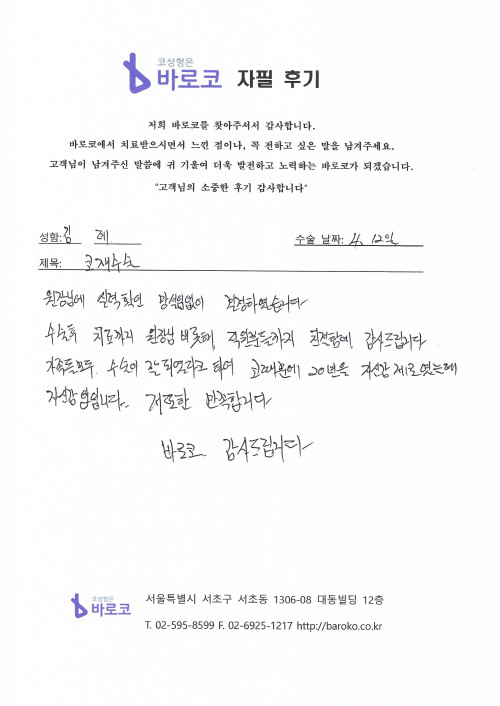 코성형은
바로코 자필 후기
저희 바로코를 찾아주셔서 감사합니다.
바로코에서 치료받으시면서 느낀 점이나, 꼭 전하고 싶은 말을 남겨주세요.
고객님이 남겨주신 말씀에 귀 기울여 더욱 발전하고 노력하는 바로코가 되겠습니다.
"고객님의 소중한 후기 감사합니다"
성함: 김 례 수술 날짜: 4. 12일
제목: 코재수술
원장님에 실력확인 망설임없이 결정하였습니다
수술후 치료까지 원장님 비롯해, 직원분들까지 친절함에, 감사드립니다
가족들모두. 수술이 잘 되었다라고 하며 코때문에 20년을 자신감 제로였는데
자신감 업입니다. 저또한 만족합니다
바로코 감사드립니다
코성형은
바로코 서울특별시 서초구 서초동 1306-08 대동빌딩 12층
T. 02-595-8599 F. 02-6925-1217 http://baroko.co.kr